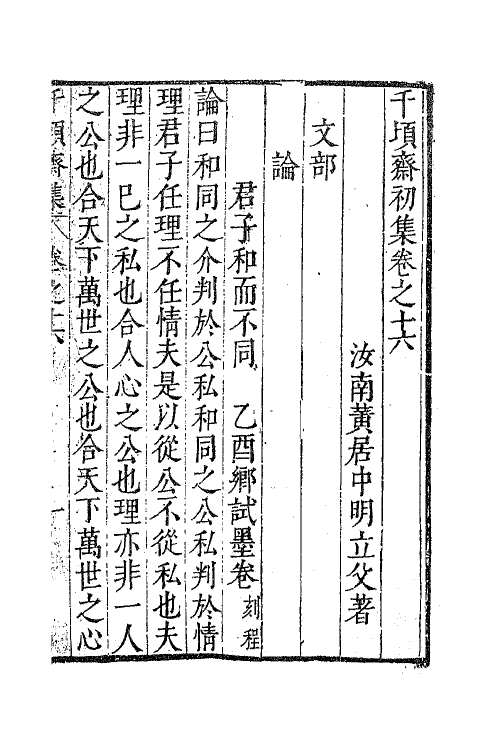 千頃齋初集卷之十六
汝南黃居中明立父著
文部
論
君子和而不同 乙酉鄉試墨卷 刻程
論曰和同之介判於公私和同之公私判於情
理君子任理不任情夫是以從公不從私也夫
理非一已之私也合人心之公也理亦非一人
之公也合天下萬世之公也合天下萬世之心
千頃齋集 卷之十六 一